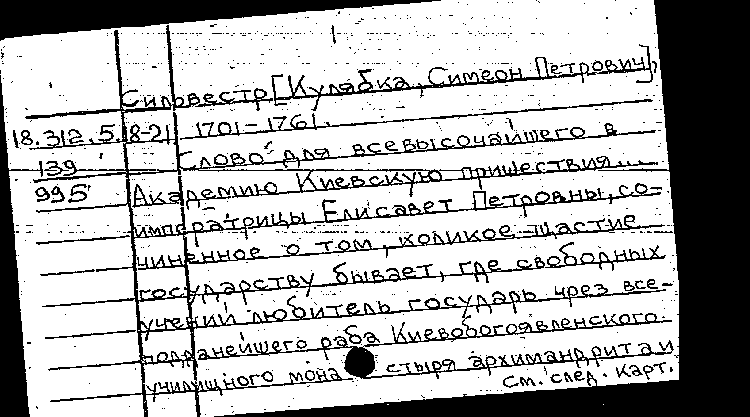 Сильвестр [Кулябка, Симеон Петрович],
18.312.5.18-21 1701-1761.
139 Слово для всевысочайшего в
995 Академию Киевскую пришествия...
императрицы Елисавет Петровны, со=
чиненное о том, коликое щастие
государству бывает, где свободных
учений любитель государь чрез все-
подданейшего раба Киевобогоявленского
училищного монастыря архимандрита и
См. след. карт.